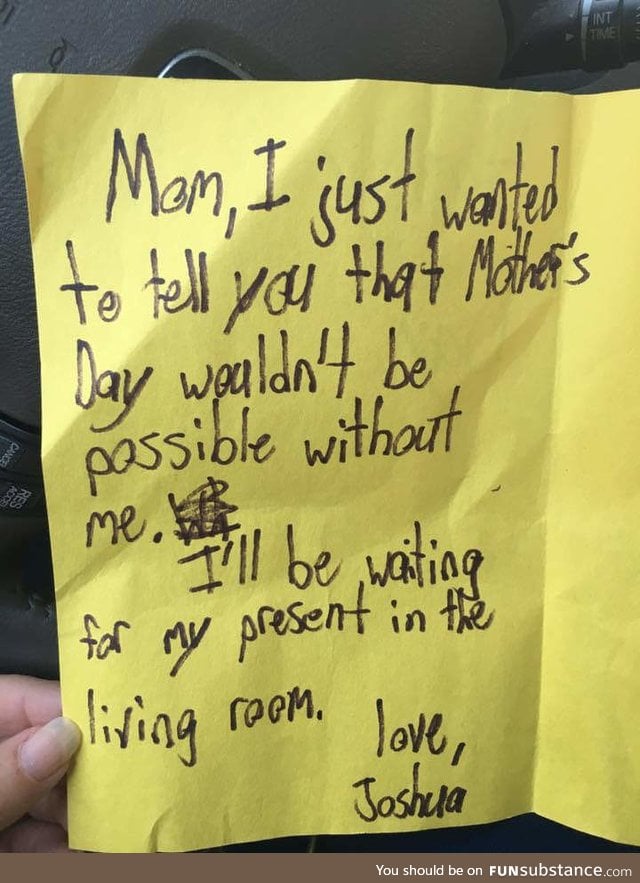 INT
TIME
Mom, I just wanted
to tell you that Mother's
Day wouldn't be
possible without
me.
I'll be waiting
for my present in the
living room.
love,
Joshua
CANCEL
RES
ACCEL
You should be on FUNsubstance.com